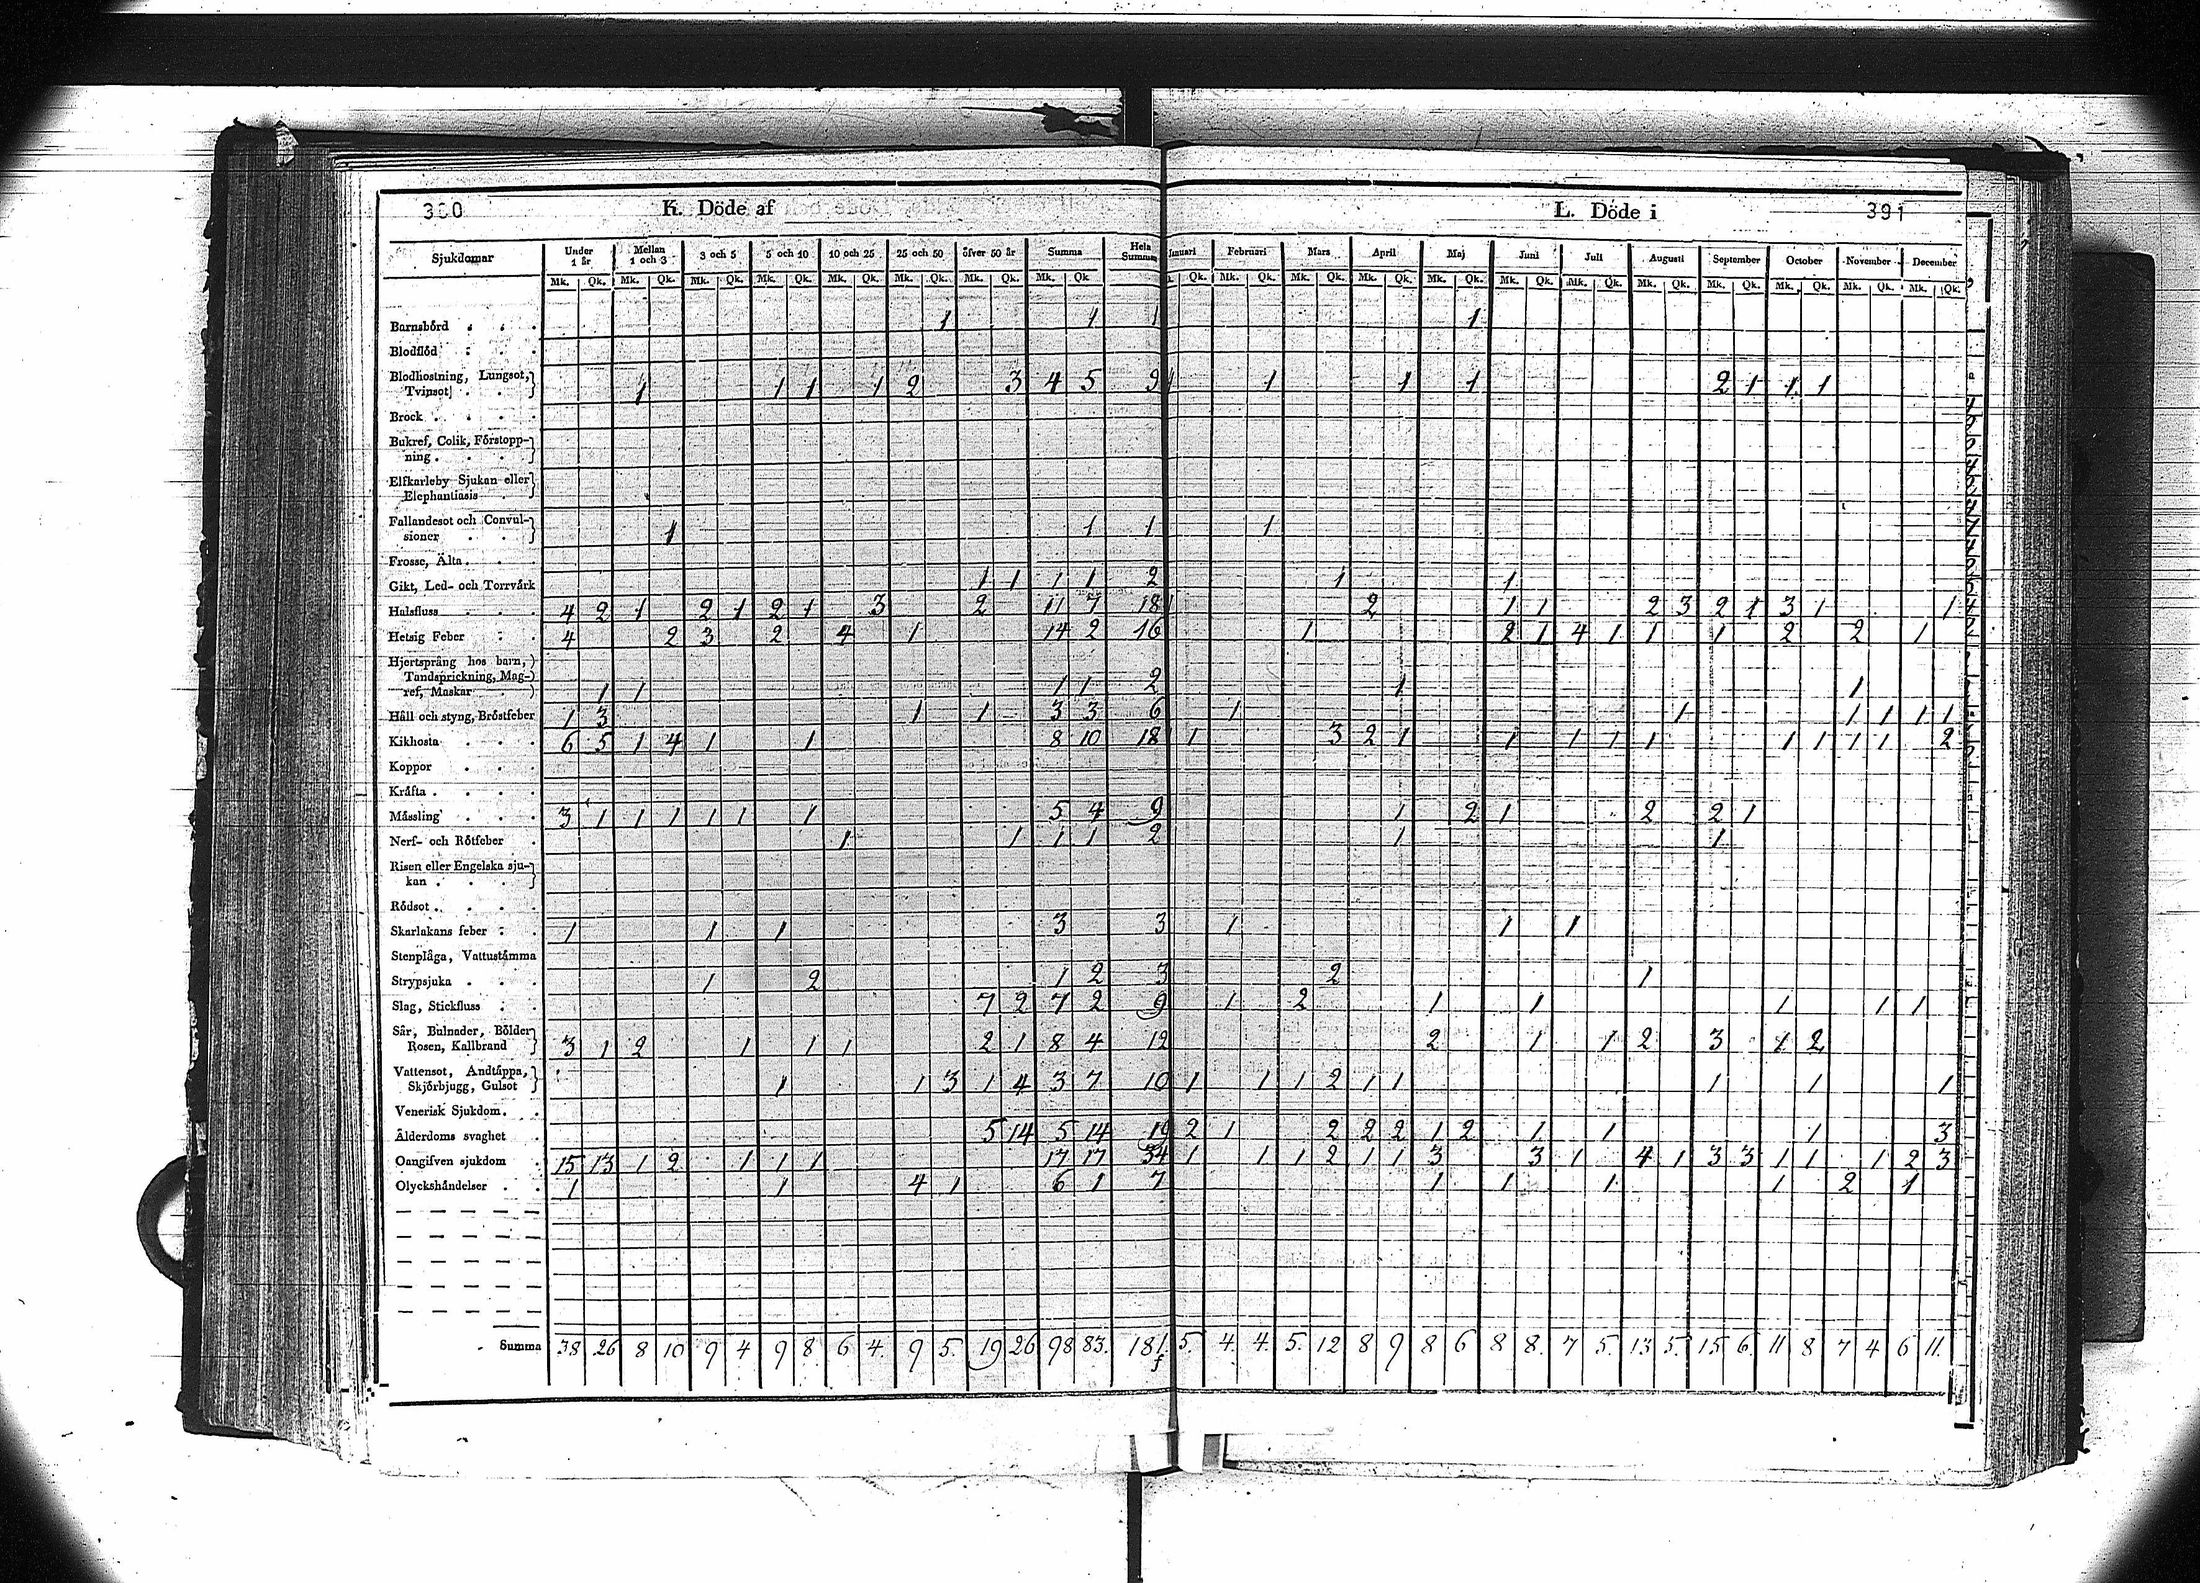 K. Döde af
L. Döde i
391
Sjukdomar Under 1 år Mellan 1 och 3 3 och 5 5 och 10 10 och 25 25 och 50 öfver 50 år Summa Hela Summan Januari Februari Mars April Maj Juni Juli Augusti September October November December
Mk. Qk. Mk. Qk. Mk. Qk. Mk. Qk. Mk. Qk. Mk. Qk. Mk. Qk. Mk. Qk. Qk. Mk. Qk. Mk. Qk. Mk. Qk. Mk. Qk. Mk. Qk. Mk. Qk. Mk. Qk. Mk. Qk. Mk. Qk. Mk. Qk. Mk. Qk.
Barnsbörd 1 1 1 1
Blodflöd
Blodhostning, Lungsot,
Tvinsot 1 1 1 1 2 3 4 5 9 1 1 1 1 2 1 1 1
Brock
Bukref, Colik, Förstopp-
ning
Elfkarleby Sjukan eller
Elephantiasis
Fallandesot och Convul-
sioner 1 1 1 1
Frosse, Älta
Gikt, Led- och Torrvärk 1 1 1 1 2 1 1
Halsfluss 4 2 1 2 1 2 1 3 2 11 7 18 1 2 1 1 2 3 2 1 3 1 1
Hetsig Feber 4 2 3 2 4 1 14 2 16 1 2 1 4 1 1 1 2 2 1
Hjertsprång hos barn,
Tandsprickning, Mag-
ref, Maskar 1 1 1 1 2 1 1
Håll och styng, Bröstfeber 1 3 1 1 3 3 6 1 1 1 1 1 1
Kikhosta 6 5 1 4 1 1 8 10 18 1 1 3 2 1 1 1 1 1 1 1 1 1 2
Koppor
Kräfta
Mässling 3 1 1 1 1 1 1 5 4 9 1 2 1 2 2 1
Nerf- och Rötfeber 1 1 1 1 2 1 1
Risen eller Engelska sju-
kan
Rödsot
Skarlakans feber 1 1 1 3 3 1 1 1
Stenplåga, Vattustämma
Strypsjuka 1 2 1 2 3 2 1
Slag, Stickfluss 7 2 7 2 9 1 2 1 1 1 1 1
Sår, Bulnader, Bölder
Rosen, Kallbrand 3 1 2 1 1 1 2 1 8 4 12 2 1 1 2 3 1 2
Vattensot, Andtäppa,
Skjörbjugg, Gulsot 1 1 3 1 4 3 7 10 1 1 1 2 1 1 1 1 1
Venerisk Sjukdom
Ålderdoms svaghet 5 14 5 14 19 2 1 2 2 2 1 2 1 1 1 3
Oangifven sjukdom 15 13 1 2 1 1 1 17 17 34 1 1 1 2 1 1 3 3 1 4 1 3 3 1 1 1 2 3
Olyckshändelser 1 1 4 1 6 1 7 1 1 1 1 2 1
Summa 38 26 8 10 9 4 9 8 6 4 9 5 19 26 98 83 181 5 4 4 5 12 8 9 8 6 8 8 7 5 13 5 15 6 11 8 7 4 6 11